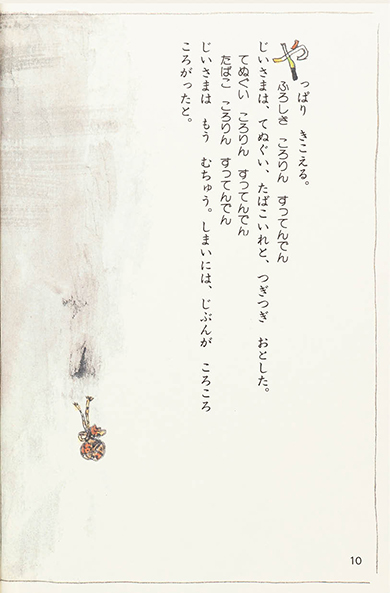 やっぱり　きこえる。
ふろしき　ころりん　すってんでん
じいさまは、てぬぐい、たばこいれと、つぎつぎ　おとした。
てぬぐい　ころりん　すってんでん
たばこ　ころりん　すってんでん
じいさまは　もう　むちゅう。しまいには、じぶんが　ころころ
ころがったと。
10